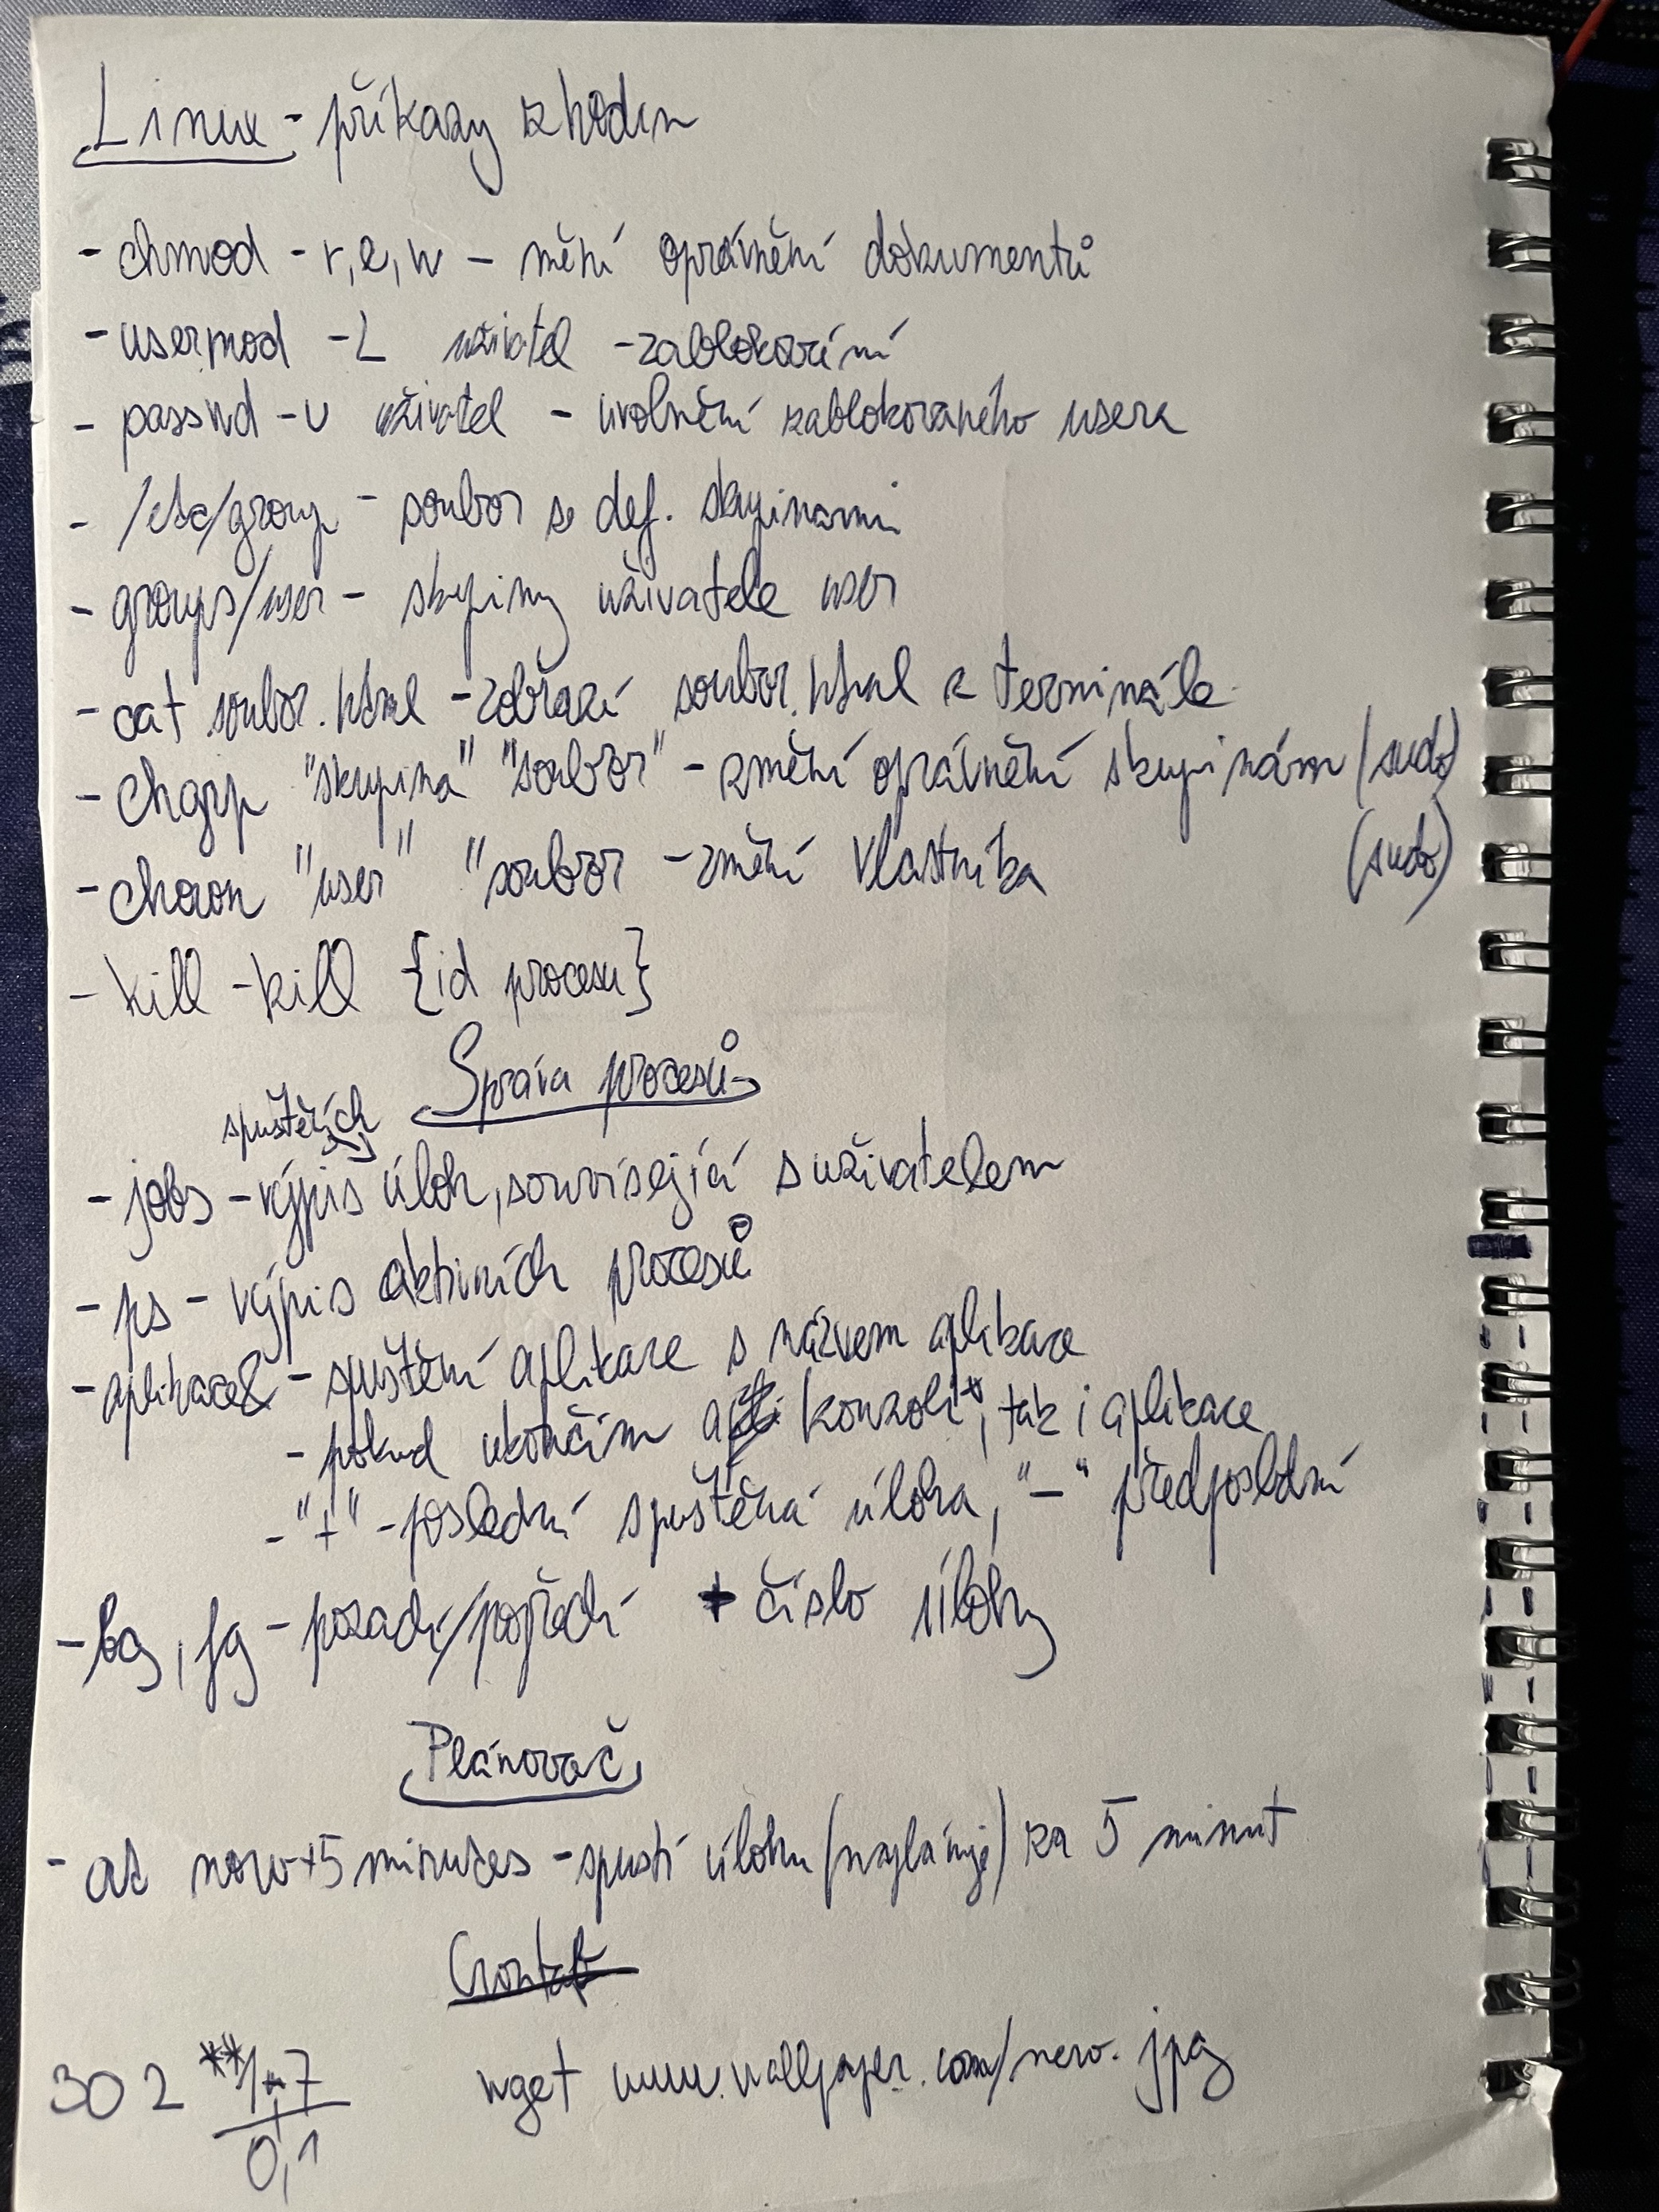 Linux - příkazy z hodin
- chmod - r,e,w - mění oprávnění dokumentů
- usermod -L uživatel - zablokování
- passwd -u uživatel - uvolnění zablokovaného usera
- /etc/group - soubor se def. skupinami
- groups/user - skupiny uživatele user
- cat soubor.html - zobrazí soubor.html v terminále
- chgrp "skupina" "soubor" - změní oprávnění skupinám (sudo)
- chown "user" "soubor - změní vlastníka (sudo)
- kill - kill {id procesu}
Správa procesů
spuštěných
- jobs - výpis úloh, související s uživatelem
- ps - výpis aktivních procesů
- aplikace& - spuštění aplikace s názvem aplikace
- pokud ukončím konzoli, tak i aplikace
- "+" - poslední spuštěná úloha, "-" předposlední
- bg, fg - pozadí/popředí + číslo úlohy
Plánovač
- at now+5 minutes - spustí úlohu (naplánuje) za 5 minut
Crontab
30 2 ** 1-7 wget www.wallpaper.com/new.jpg
0,1